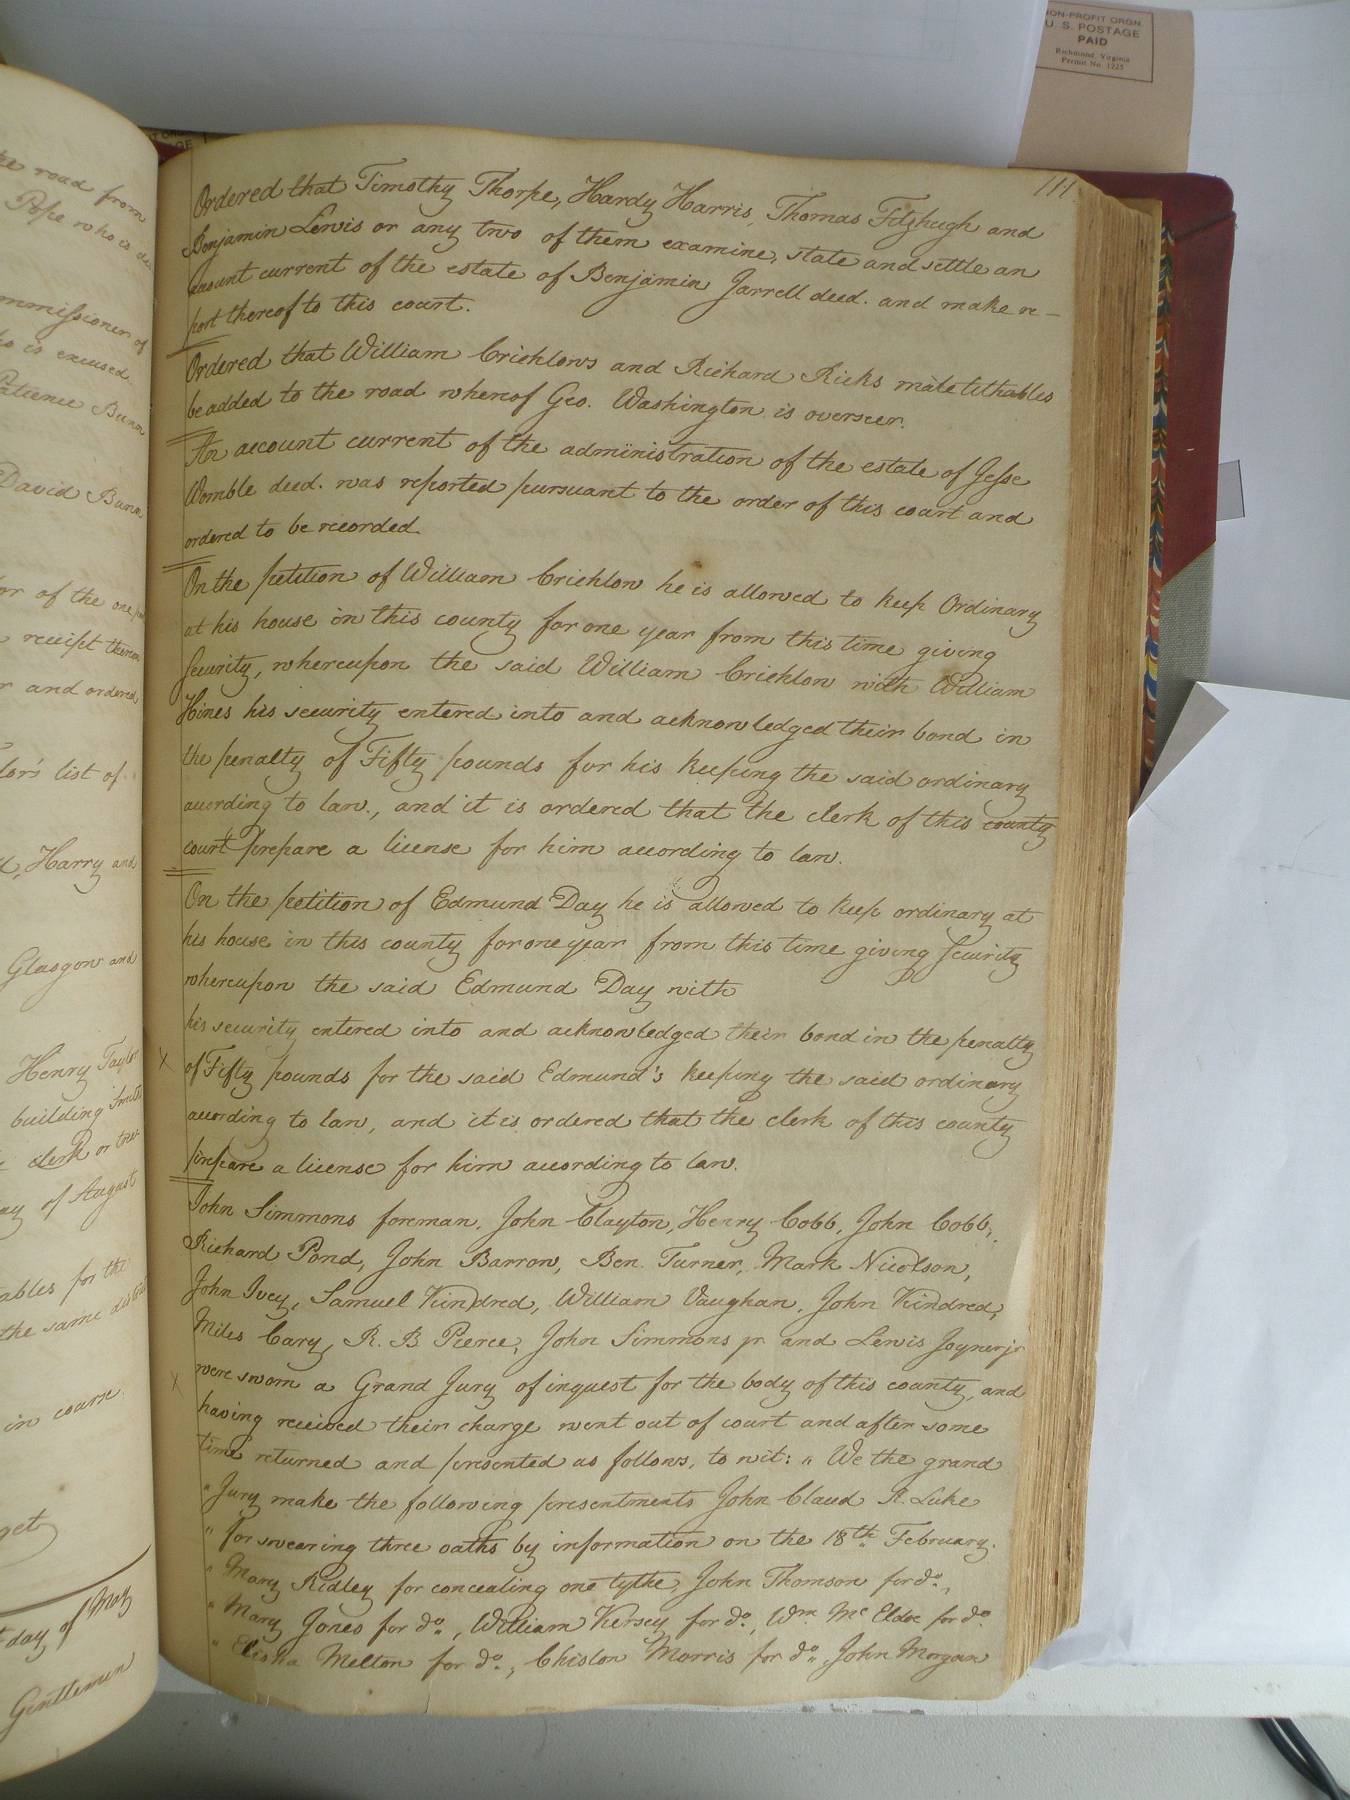 NON-PROFIT ORGN.
U. S. POSTAGE
PAID
Richmond, Virginia
Permit No. 1225
111
Ordered that Timothy Thorpe, Hardy Harris, Thomas Fitzhugh and
Benjamin Lewis or any two of them examine, state and settle an
account current of the estate of Benjamin Jarrell decd. and make re-
port thereof to this court.
Ordered that William Crichlows and Richard Ricks male tithables
be added to the road whereof Geo. Washington is overseer.
An account current of the administration of the estate of Jesse
Womble decd. was reported pursuant to the order of this court and
ordered to be recorded
On the petition of William Crichlow he is allowed to keep Ordinary
at his house in this county for one year from this time giving
security, whereupon the said William Crichlow with William
Hines his security entered into and acknowledged their bond in
the penalty of Fifty pounds for his keeping the said ordinary
according to law., and it is ordered that the clerk of this county
court prepare a license for him according to law.
On the petition of Edmund Day he is allowed to keep ordinary at
his house in this county for one year from this time giving security
whereupon the said Edmund Day with
his security entered into and acknowledged their bond in the penalty
x of Fifty pounds for the said Edmund's keeping the said ordinary
according to law, and it is ordered that the clerk of this county
prepare a license for him according to law.
John Simmons foreman, John Clayton, Henry Cobb, John Cobb,
Richard Pond, John Barrow, Ben. Turner, Mark Nicolson,
John Ivey, Samuel Kindred, William Vaughan, John Kindred,
Miles Cary, R. B Pierce, John Simmons jr and Lewis Joyner jr
x were sworn a Grand Jury of inquest for the body of this county, and
having received their charge went out of court and after some
time returned and presented as follows, to wit: " We the grand
" Jury make the following presentments John Claud R. Luke
" for swearing three oaths by information on the 18th. February.
" Mary Ridley for concealing one tythe, John Thomson for do.,
" Mary Jones for do., William Kersey for do., Wm. Mc Eldoe for do
" Elisha Melton for do., Chislon Morris for do. John Morgan
the road from
Pope who is de
mmissioner of
ho is excused
Patience Bunn
David Bunn
or of the one
receipt thereon
r and ordered
lor's list of
Harry and
Glasgow and
Henry Taylor
building
clerk or
ay of August
ables for the
the same
in course
get
day of May
Gentlemen